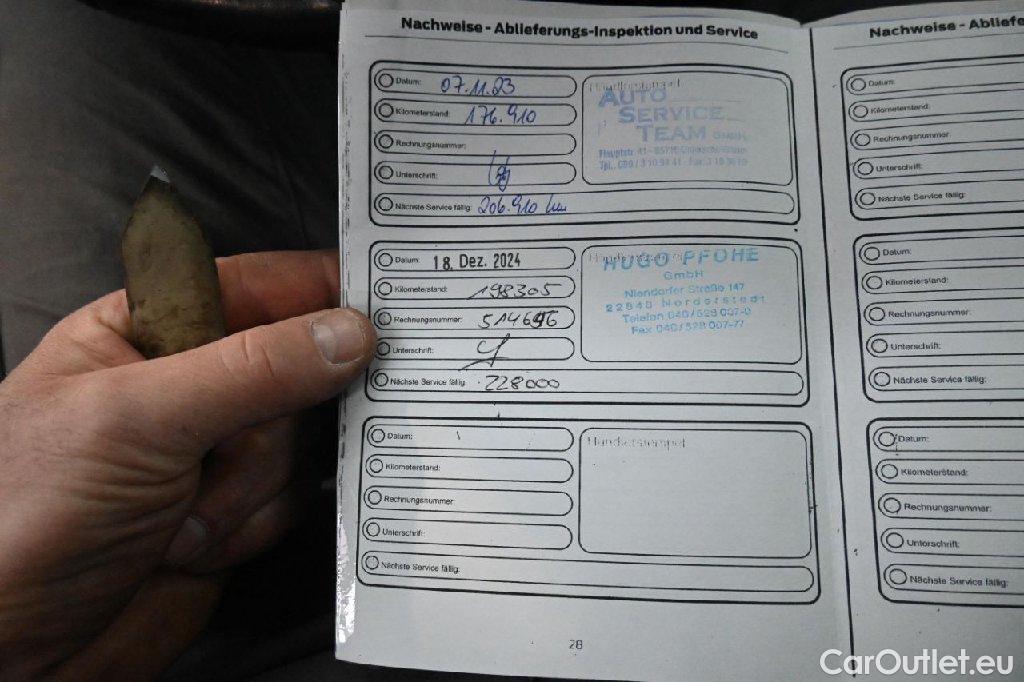 Nachweise - Ablieferungs-Inspektion und Service
Datum: 07.11.23
Kilometerstand: 176.910
Rechnungsnummer:
Unterschrift:
Nächste Service fällig: 206.910 km
Händlerstempel
AUTO
SERVICE
TEAM GmbH
Hauptstr. 41 - 85716
Datum: 18. Dez. 2024
Kilometerstand: 198305
Rechnungsnummer: 514696
Unterschrift:
Nächste Service fällig: 228000
HUGO PFOHE
GmbH
Niendorfer Straße 147
22848 Norderstedt
Telefon 040/528 007-0
Fax 040/528 007-77
Datum:
Kilometerstand:
Rechnungsnummer:
Unterschrift:
Nächste Service fällig:
Händlerstempel
28
Nachweise - Abliefe
Datum:
Kilometerstand:
Rechnungsnummer:
Unterschrift:
Nächste Service fällig:
Datum:
Kilometerstand:
Rechnungsnummer:
Unterschrift:
Nächste Service fällig:
Datum:
Kilometerstand:
Rechnungsnummer:
Unterschrift:
Nächste Service fällig:
CarOutlet.eu